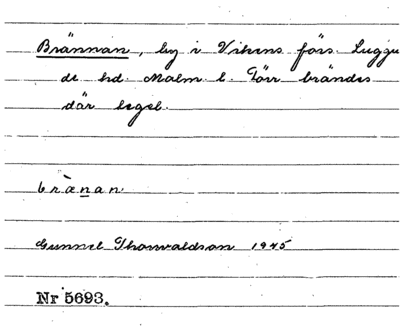 Brännan, by i Vikens förs. Luggu
de hd. Malm. l. Förr brändes
där tegel.
brὰnan
Gunnel Thorwaldson 1945
Nr 5693.